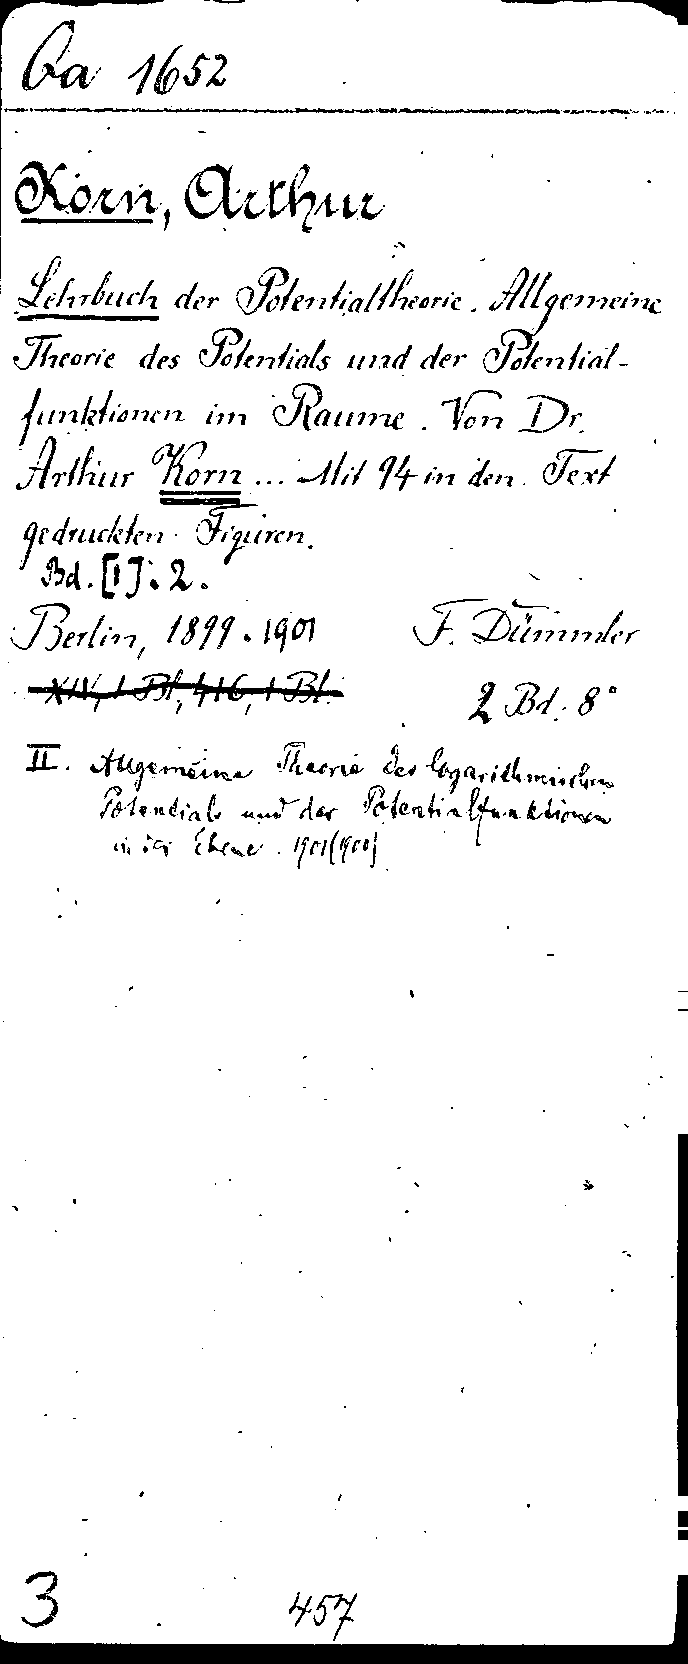 Ca 1652
Korn, Arthur
Lehrbuch der Potentialtheorie. Allgemeine
Theorie des Potentials und der Potential-
funktionen im Raume. Von Dr.
Arthur Korn ... Mit 94 in den Text
gedruckten Figuren.
Bd. [1]. 2.
Berlin, 1899. 1901 F. Dümmler
XIV, 1 Bl., 416, 1 Bl. 2 Bd. 8°
II. Allgemeine Theorie des logarithmischen
Potentials und der Potentialfunktionen
in der Ebene. 1901 (1900)
3 457